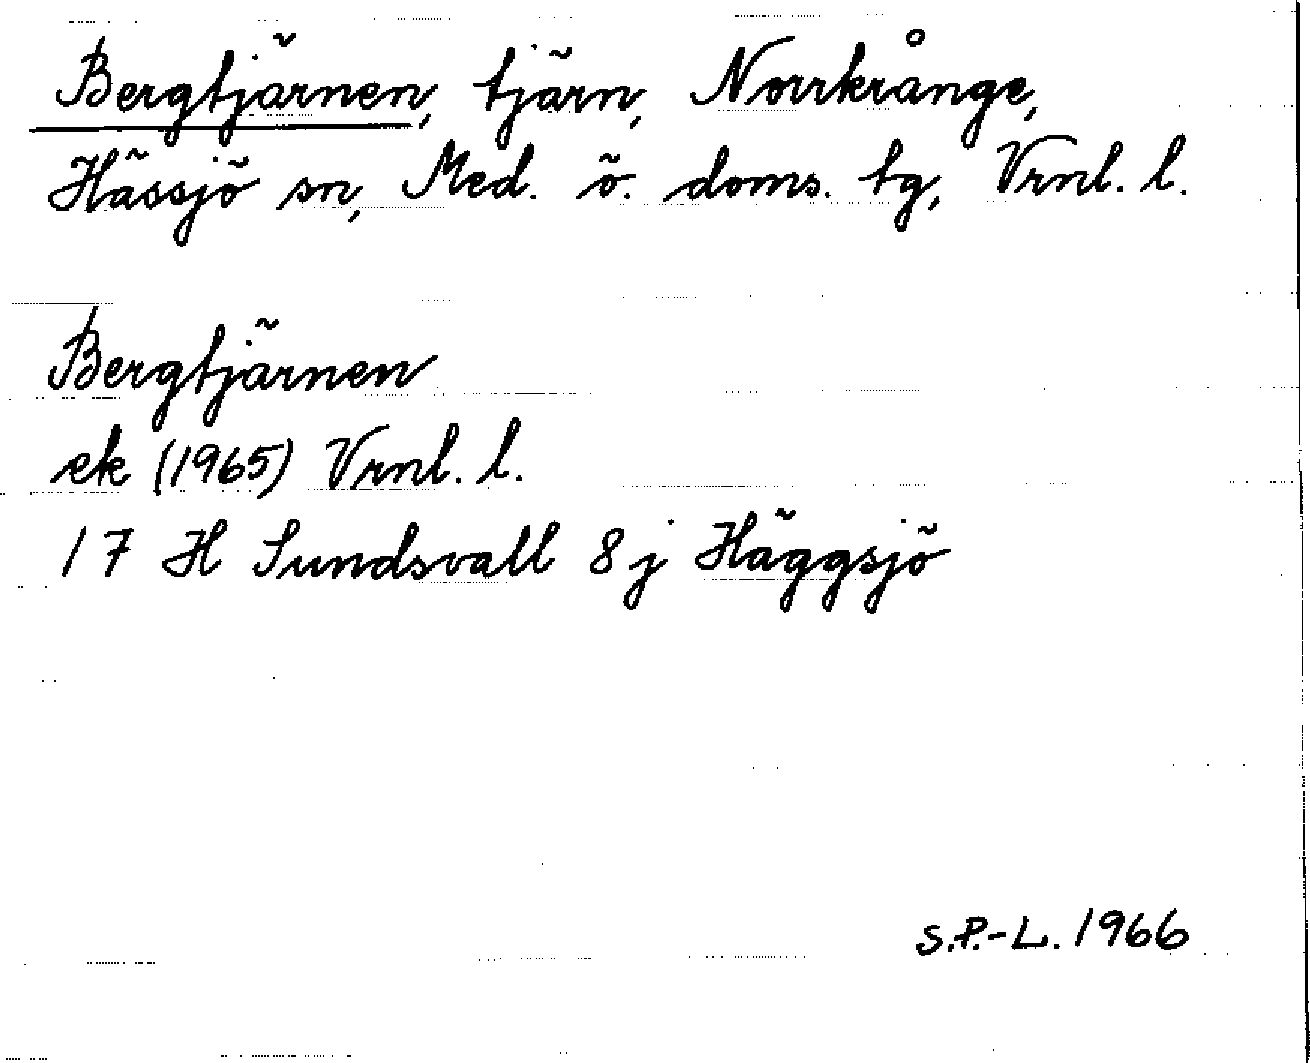 Bergtjärnen, tjärn, Norrkrånge,
Hässjö sn, Med. ö. doms. tg, Vrnl. l.
Bergtjärnen
ek (1965) Vrnl. l.
17 H Sundsvall 8 j Häggsjö
S.P.-L. 1966